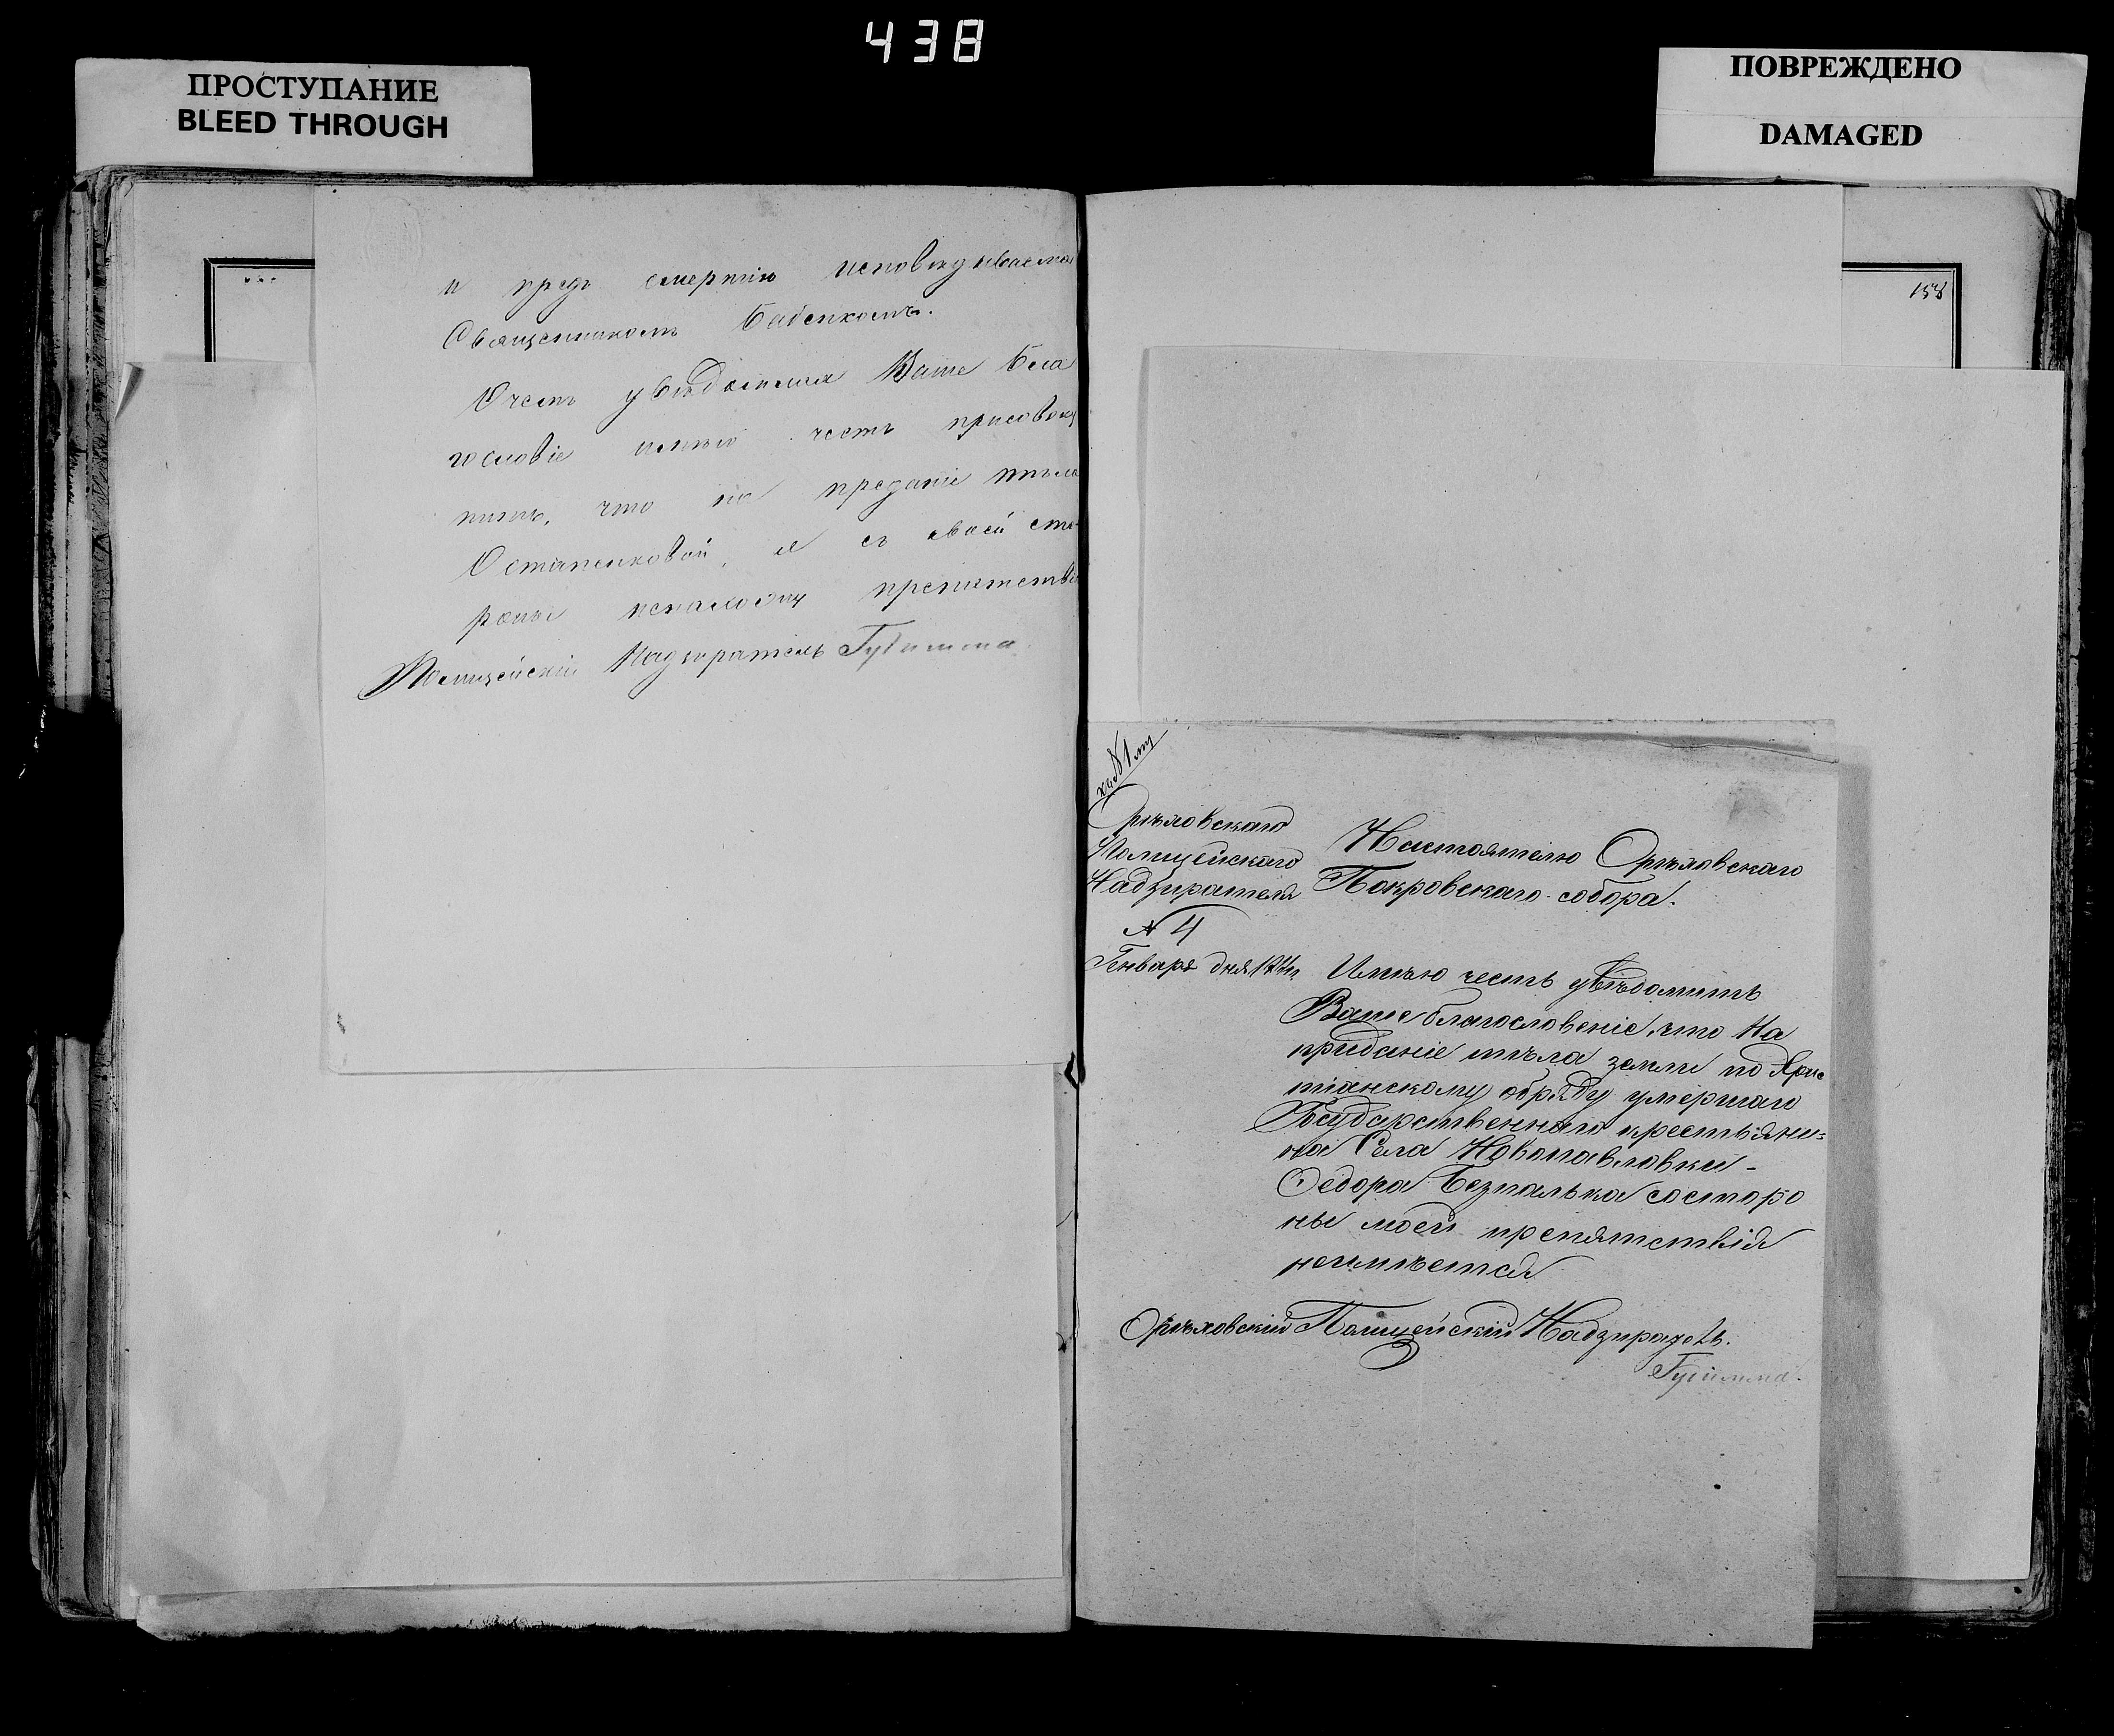 438
ПРОСТУПАНИЕ
BLEED THROUGH
ПОВРЕЖДЕНО
DAMAGED
и предъ смертію исповѣдываема
Священникомъ Баденкомъ.
О чемъ увѣдомляя Ваше Бла
гословіе имѣю честь присовоку
пить, что на преданіе тѣла
Остапенковой, я съ своей сто
роны ненахожу препятствій
Полицейскій Надзиратель
158
къ № 1му
Орѣховскаго
Полицейскаго
Надзирателя
№ 4
Генваря дня
Настоятелю Орѣховскаго
Покровскаго собора.
Имѣю честь увѣдомить
Ваше благословеніе, что На
придание тѣла земли по Хрис
тіанскому обряду умершаго
Государственнаго крестьяни=
на Села Новопавловки -
Ѳедора Безпалька состоро
ны моей препятствія
неимѣется
Орѣховскій Полицейскій Надзиратель.